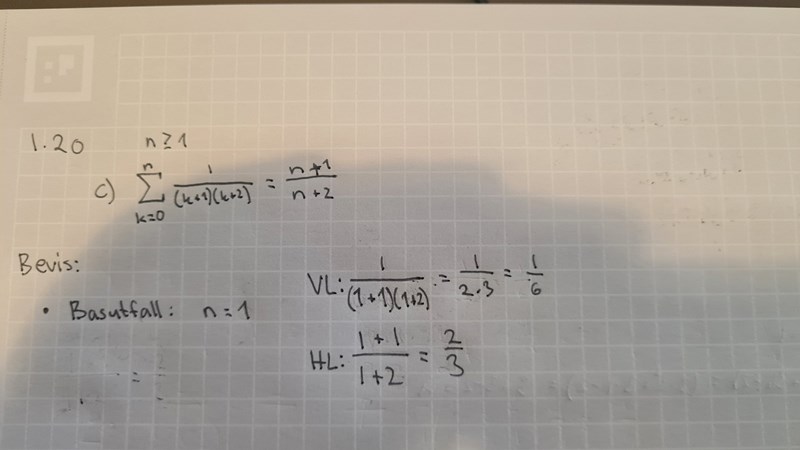 1.20 n≥1
c) ∑_{k=0}^{n} 1/((k+1)(k+2)) = (n+1)/(n+2)
Bevis:
• Basutfall: n=1
VL: 1/((1+1)(1+2)) = 1/(2·3) = 1/6
HL: (1+1)/(1+2) = 2/3